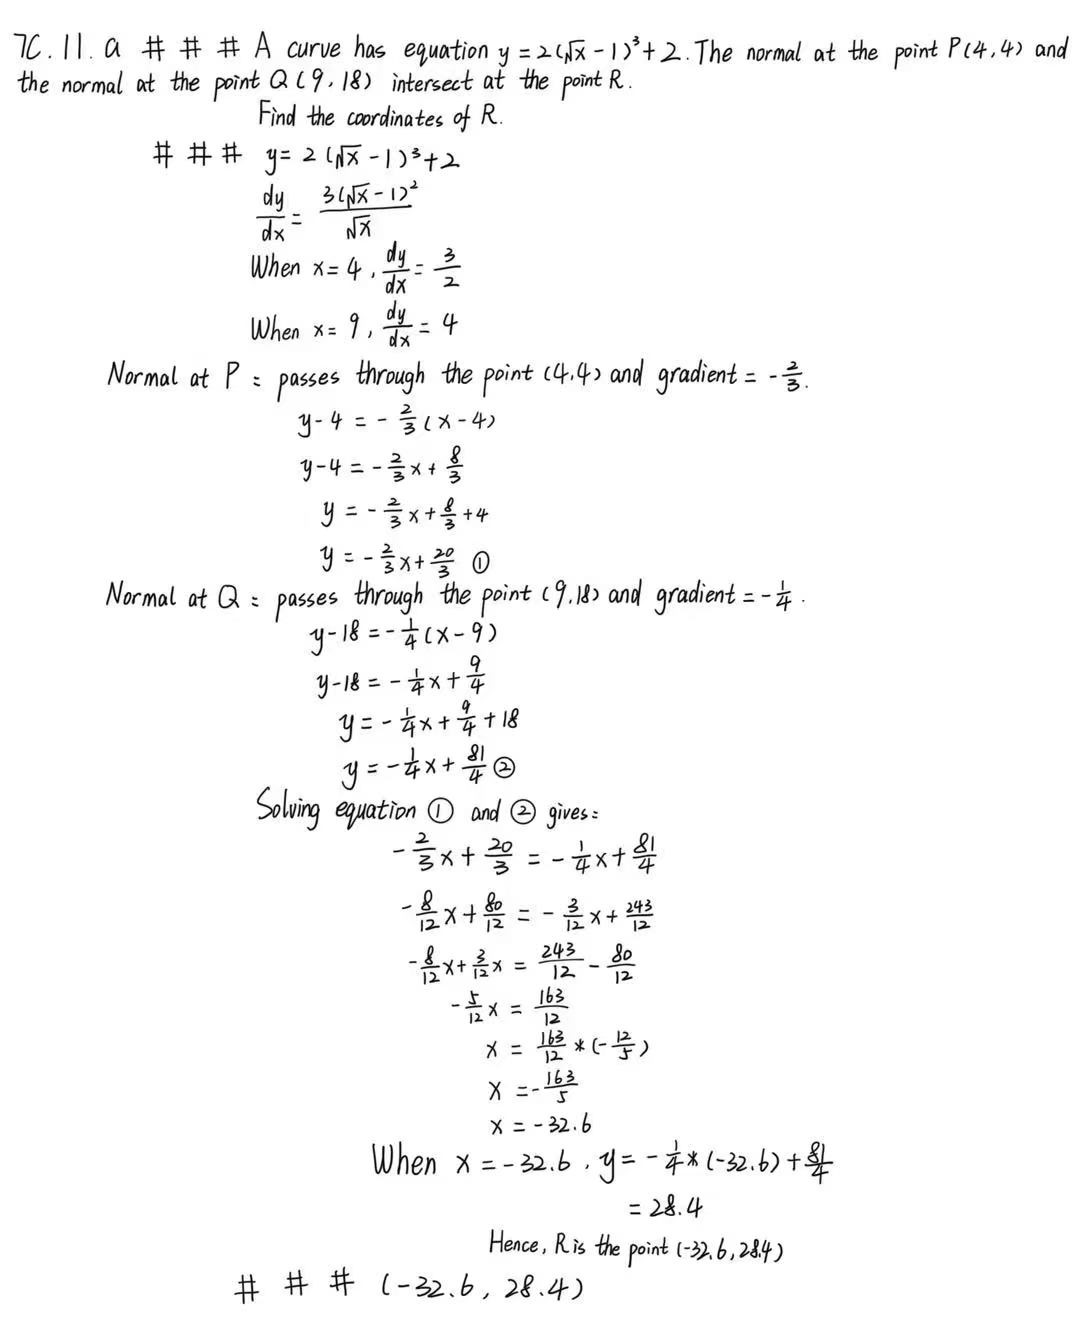 7C.11.a # # # A curve has equation y = 2(√x - 1)³ + 2. The normal at the point P(4,4) and
the normal at the point Q(9,18) intersect at the point R.
Find the coordinates of R.
# # # y = 2(√x - 1)³ + 2
dy/dx = 3(√x - 1)²/√x
When x = 4, dy/dx = 3/2
When x = 9, dy/dx = 4
Normal at P : passes through the point (4,4) and gradient = -2/3.
y - 4 = -2/3(x - 4)
y - 4 = -2/3x + 8/3
y = -2/3x + 8/3 + 4
y = -2/3x + 20/3 ①
Normal at Q : passes through the point (9,18) and gradient = -1/4.
y - 18 = -1/4(x - 9)
y - 18 = -1/4x + 9/4
y = -1/4x + 9/4 + 18
y = -1/4x + 81/4 ②
Solving equation ① and ② gives:
-2/3x + 20/3 = -1/4x + 81/4
-8/12x + 80/12 = -3/12x + 243/12
-8/12x + 3/12x = 243/12 - 80/12
-5/12x = 163/12
x = 163/12 * (-12/5)
x = -163/5
x = -32.6
When x = -32.6, y = -1/4 * (-32.6) + 81/4
= 28.4
Hence, R is the point (-32.6, 28.4)
# # # (-32.6, 28.4)